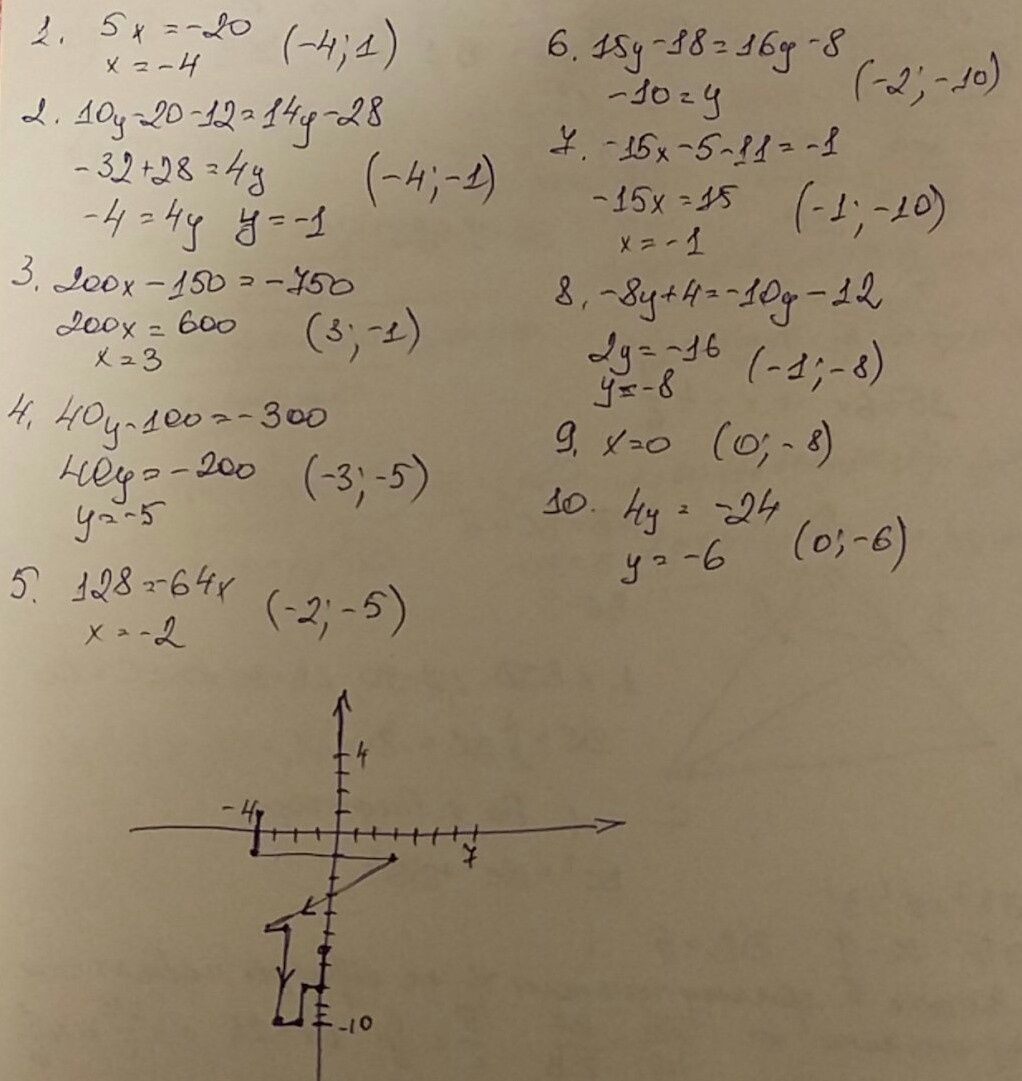 1. 5x = -20 (-4; 1)
x = -4
2. 10y-20-12=14y-28
-32+28=4y (-4; -1)
-4=4y y=-1
3. 200x-150=-750
200x=600 (3; -1)
x=3
4. 40y-100=-300
40y=-200 (-3; -5)
y=-5
5. 128=-64x (-2; -5)
x=-2
6. 15y-18=16y-8 (-2; -10)
-10=y
7. -15x-5-11=-1
-15x=15 (-1; -10)
x=-1
8. -8y+4=-10y-12
2y=-16 (-1; -8)
y=-8
9. x=0 (0; -8)
10. 4y=-24 (0; -6)
y=-6
4
-4
7
-10